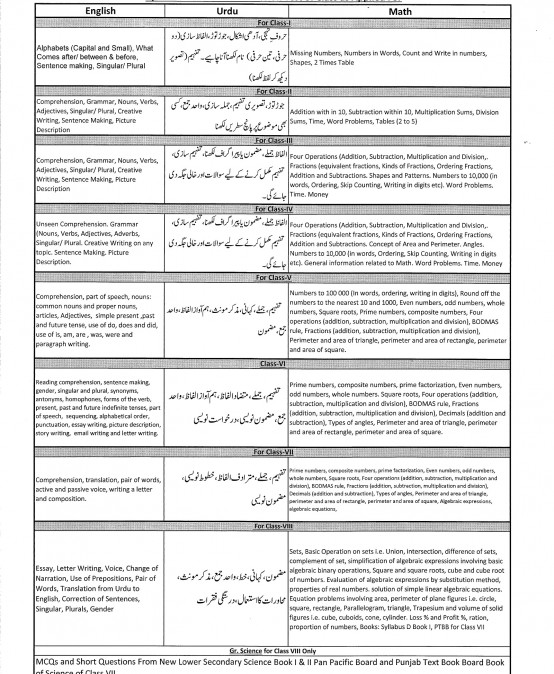 English Urdu Math
For Class-I
Alphabets (Capital and Small), What
Comes after/ between & before,
Sentence making, Singular/ Plural
حروف تہجی، آدھی اشکال، جوڑ توڑ، الفاظ سازی (دو
حرفی، تین حرفی) نام لکھنا آنا چاہیے۔ تفہیم (تصویر
دیکھ کر لفظ لکھنا)
Missing Numbers, Numbers in Words, Count and Write in numbers,
Shapes, 2 Times Table
For Class-II
Comprehension, Grammar, Nouns, Verbs,
Adjectives, Singular/ Plural, Creative
Writing, Sentence Making, Picture
Description
جوڑ توڑ، تصویری تفہیم، جملہ سازی، واحد جمع، کسی
بھی موضوع پر پانچ سطریں لکھنا
Addition with in 10, Subtraction within 10, Multiplication Sums, Division
Sums, Time, Word Problems, Tables (2 to 5)
For Class-III
Comprehension, Grammar, Nouns, Verbs,
Adjectives, Singular/ Plural, Creative
Writing, Sentence Making, Picture
Description
الفاظ جملے، مضمون یا پیراگراف لکھنا، تفہیم سازی،
تفہیم مکمل کرنے کے لیے سوالات اور خالی جگہ دی
جائے گی۔
Four Operations (Addition, Subtraction, Multiplication and Division,.
Fractions (equivalent fractions, Kinds of Fractions, Ordering Fractions,
Addition and Subtractions. Shapes and Patterns. Numbers to 10,000 (in
words, Ordering, Skip Counting, Writing in digits etc). Word Problems.
Time. Money
For Class-IV
Unseen Comprehension. Grammar
(Nouns, Verbs, Adjectives, Adverbs,
Singular/ Plural. Creative Writing on any
topic. Sentence Making. Picture
Description.
الفاظ جملے، مضمون یا پیراگراف لکھنا، تفہیم سازی،
تفہیم مکمل کرنے کے لیے سوالات اور خالی جگہ دی
جائے گی۔
Four Operations (Addition, Subtraction, Multiplication and Division,.
Fractions (equivalent fractions, Kinds of Fractions, Ordering Fractions,
Addition and Subtractions. Concept of Area and Perimeter. Angles.
Numbers to 10,000 (in words, Ordering, Skip Counting, Writing in digits
etc). General information related to Math. Word Problems. Time. Money
For Class-V
Comprehension, part of speech, nouns:
common nouns and proper nouns,
articles, Adjectives, simple present ,past
and future tense, use of do, does and did,
use of is, am, are , was, were and
paragraph writing.
تفہیم، جملے، کہانی، مذکر مونث، ہم آواز الفاظ، واحد
جمع، مضمون
Numbers to 100 000 (In words, ordering, writing in digits), Round off the
numbers to the nearest 10 and 1000, Even numbers, odd numbers, whole
numbers, Square roots, Prime numbers, composite numbers, Four
operations (addition, subtraction, multiplication and division), BODMAS
rule, Fractions (addition, subtraction, multiplication and division),
Perimeter and area of triangle, perimeter and area of rectangle, perimeter
and area of square.
Class-VI
Reading comprehension, sentence making,
gender, singular and plural, synonyms,
antonyms, homophones, forms of the verb,
present, past and future indefinite tenses, part
of speech, sequencing, alphabetical order,
punctuation, essay writing, picture description,
story writing, email writing and letter writing.
تفہیم، جملے، متضاد الفاظ، ہم آواز الفاظ، واحد
جمع، مضمون نویسی، درخواست نویسی
Prime numbers, composite numbers, prime factorization, Even numbers,
odd numbers, whole numbers. Square roots, Four operations (addition,
subtraction, multiplication and division), BODMAS rule, Fractions
(addition, subtraction, multiplication and division), Decimals (addition and
subtraction), Types of angles, Perimeter and area of triangle, perimeter
and area of rectangle, perimeter and area of square.
For Class-VII
Comprehension, translation, pair of words,
active and passive voice, writing a letter
and composition.
تفہیم، جملے، مترادف الفاظ، خطوط نویسی،
مضمون نویسی
Prime numbers, composite numbers, prime factorization, Even numbers, odd numbers,
whole numbers, Square roots, Four operations (addition, subtraction, multiplication and
division), BODMAS rule, Fractions (addition, subtraction, multiplication and division),
Decimals (addition and subtraction), Types of angles, Perimeter and area of triangle,
perimeter and area of rectangle, perimeter and area of square, Algebraic expressions,
algebraic equations,
For Class-VIII
Essay, Letter Writing, Voice, Change of
Narration, Use of Prepositions, Pair of
Words, Translation from Urdu to
English, Correction of Sentences,
Singular, Plurals, Gender
مضمون، کہانی، خط، واحد جمع، مذکر مونث،
محاورات کا استعمال، درستگی فقرات
Sets, Basic Operation on sets i.e. Union, intersection, difference of sets,
complement of set, simplification of algebraic expressions involving basic
algebraic binary operations, Square and square roots, cube and cube root
of numbers. Evaluation of algebraic expressions by substitution method,
properties of real numbers. solution of simple linear algebraic equations.
Equation problems involving area, perimeter of plane figures i.e. circle,
square, rectangle, Parallelogram, triangle, Trapesium and volume of solid
figures i.e. cube, cuboids, cone, cylinder. Loss % and Profit %, ration,
proportion of numbers, Books: Syllabus D Book I, PTBB for Class VII
Gr. Science for Class VIII Only
MCQs and Short Questions From New Lower Secondary Science Book I & II Pan Pacific Board and Punjab Text Book Board Book
of Science of Class VII